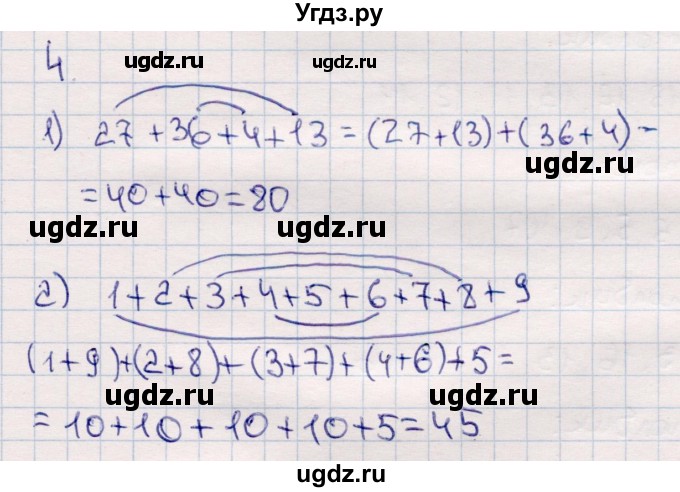 Угдз.ру
4.
ugdz.ru ugdz.ru
1) 27 + 36 + 4 + 13 = (27 + 13) + (36 + 4) -
ugdz.ru
= 40 + 40 = 80
ugdz.ru ugdz.ru
2) 1 + 2 + 3 + 4 + 5 + 6 + 7 + 8 + 9
ugdz.ru ugdz.ru
(1 + 9) + (2 + 8) + (3 + 7) + (4 + 6) + 5 =
ugdz.ru ugdz.ru
= 10 + 10 + 10 + 10 + 5 = 45
ugdz.ru